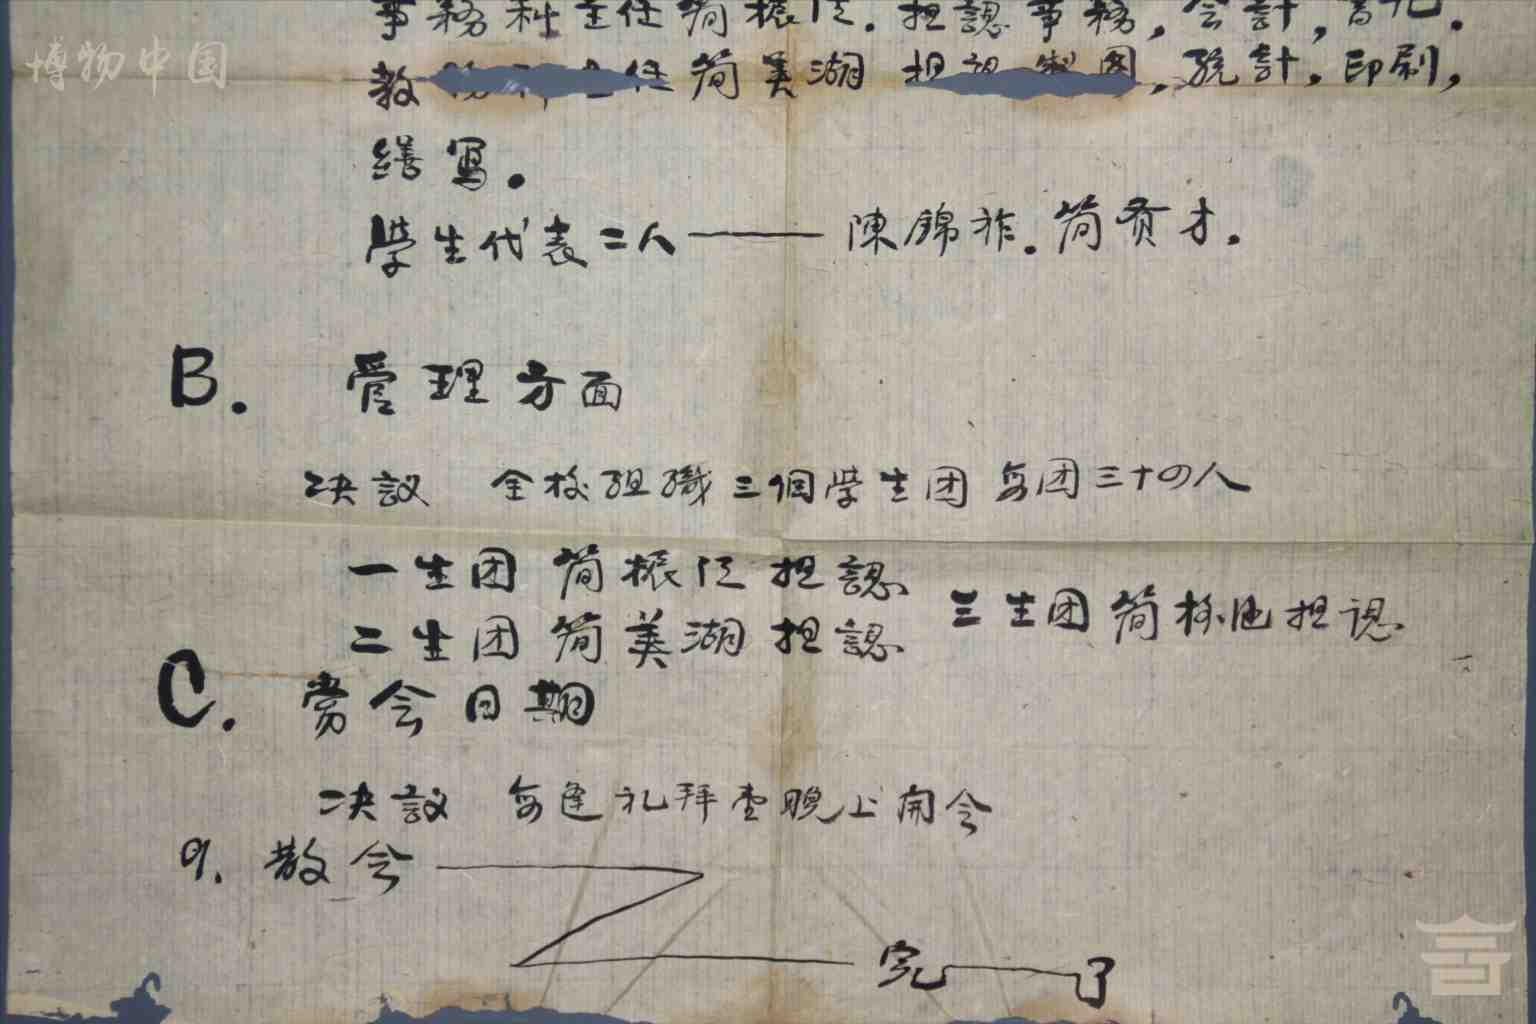 博物中国
事務科主任简振​. 担認事務,会計,書記.
教​主任简美湖 担認製图,統計,印刷,
繕寫.
學生代表二人——陳錦祚.简贡才.
B. 管理方面
决議 全校组織三個學生团 每团三十四人
一生团 简振 担認
二生团 简美湖 担認
三生团 简 担认
C. 常会日期
决議 每逢礼拜壹晚上開会
9. 散会
完了